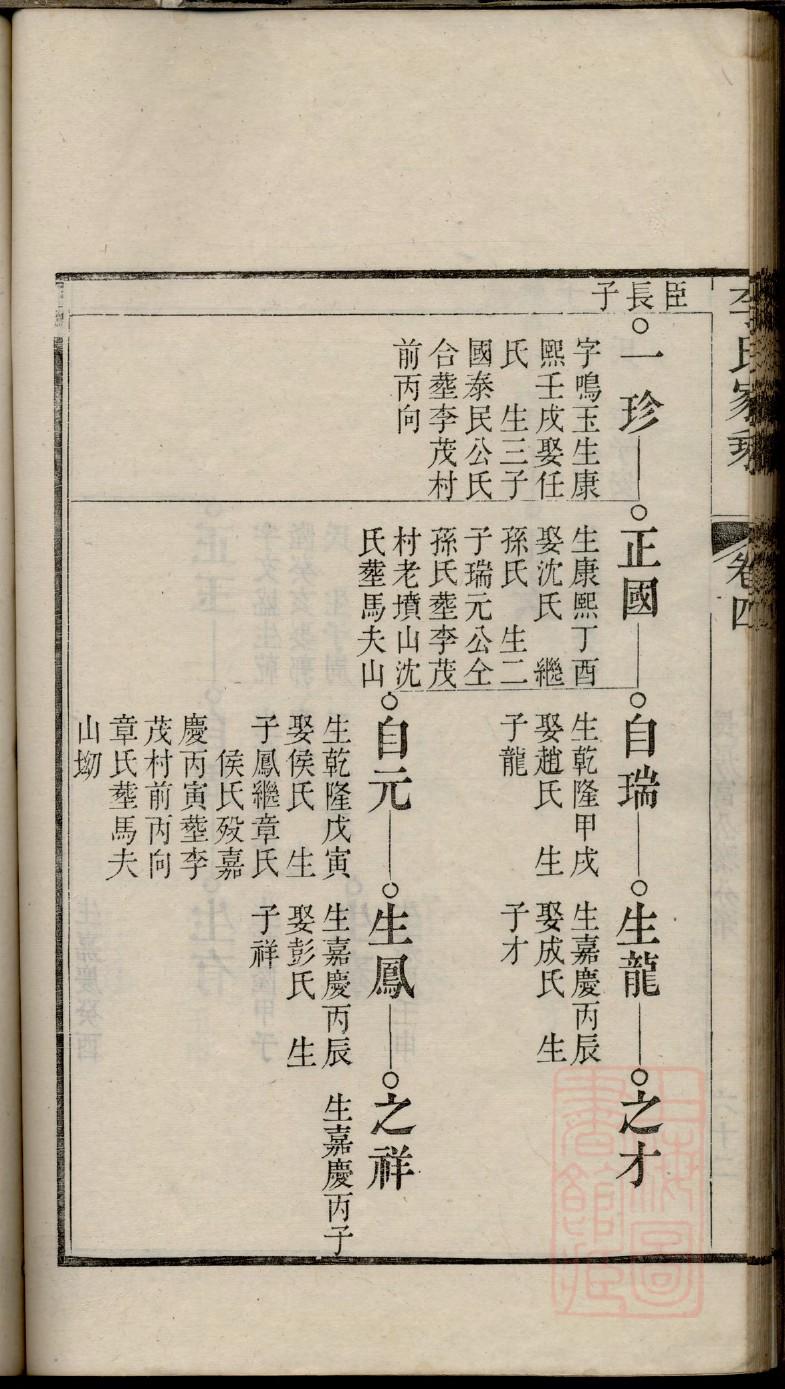 李氏家乘
卷四
臣長子
一珍
字鳴玉生康
熙壬戌娶任
氏　生三子
國泰民公氏
合塟李茂村
前丙向
正國
生康熙丁酉
娶沈氏　繼
孫氏　生二
子瑞元公仝
孫氏塟李茂
村老墳山沈
氏塟馬夫山
自瑞
生乾隆甲戌
娶趙氏　生
子龍
生龍
生嘉慶丙辰
娶成氏　生
子才
之才
自元
生乾隆戊寅
娶侯氏　生
子鳳繼章氏
侯氏歿嘉
慶丙寅塟李
茂村前丙向
章氏塟馬夫
山坳
生鳳
生嘉慶丙辰
娶彭氏　生
子祥
之祥
生嘉慶丙子
上海圖
書館藏